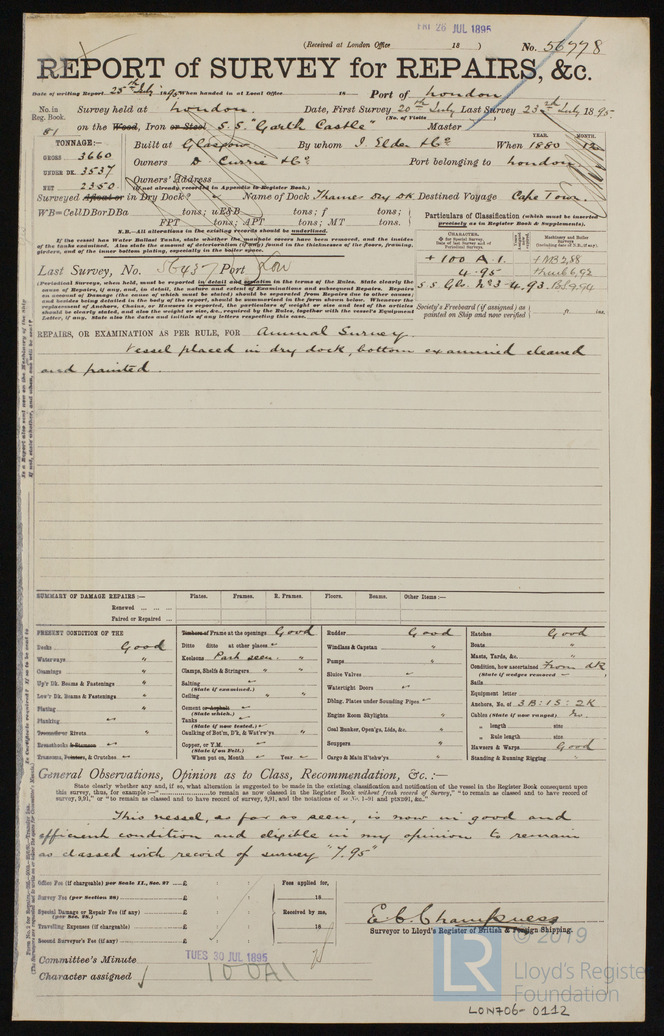 FRI 26 JUL 1895
(Received at London Office 18 )
No. 56778
REPORT of SURVEY for REPAIRS, &c.
Date of writing Report 25th July 1895 When handed in at Local Office 18 Port of London
No. in Reg. Book. Survey held at London. Date, First Survey 20th July Last Survey 23rd July 1895
(No. of Visits )
81 on the Wood, Iron or Steel S.S. "Garth Castle" Master
TONNAGE:—
GROSS 3660
UNDER DK. 3537
NET 2350
Built at Glasgow By whom J. Elder & Co When 1880 12
YEAR. MONTH.
Owners D Currie & Co Port belonging to London
Owners' Address
(if not already recorded in Appendix to Register Book.)
Surveyed Afloat or in Dry Dock? Name of Dock Thames Dry Dk Destined Voyage Cape Town.
WB=CellDBorDBa tons; uE&B tons; f tons;
FPT tons; APT tons; MT tons.
N.B.—All alterations in the existing records should be underlined.
If the vessel has Water Ballast Tanks, state whether the manhole covers have been removed, and the insides of the tanks examined. Also state the amount of decay (if any) found in the thicknesses of the floors, framing, girders, and of the inner bottom plating, especially in the boiler space.
Particulars of Classification (which must be inserted precisely as in Register Book & Supplements).
+ 100 A.1. + NB 2,88
4.95
S S Glo. No 3 - 4.93
Last Survey, No. 56437 Port Lon
(Periodical Surveys, when held, must be reported in detail and seriatim in the terms of the Rules. State clearly the cause of Repairs, if any, and, in detail, the nature and extent of Examinations and subsequent Repairs. Repairs on account of Damage (the cause of which must be stated) should be separated from Repairs due to other causes; and besides being detailed in the body of the report, should be summarised in the form shown below. Whenever the replacement of Anchors, Chains, or Hawsers is reported, the particulars of weight or size and test of the articles should be clearly stated, and also the weight or size, &c., required by the Rules, together with the vessel's Equipment Letter, if any. State also the dates and initials of any letters respecting this case.
Society's Freeboard (if assigned) as painted on Ship and now verified ft. ins.
REPAIRS, OR EXAMINATION AS PER RULE, FOR Annual Survey.
Vessel placed in dry dock, bottom examined cleaned
and painted.
SUMMARY OF DAMAGE REPAIRS :— Plates. Frames. R. Frames. Floors. Beams. Other Items :—
Renewed
Faired or Repaired
PRESENT CONDITION OF THE
Decks Good
Waterways "
Coamings "
Up'r Dk. Beams & Fastenings "
Low'r Dk. Beams & Fastenings "
Plating "
Planking
Treenails or Rivets "
Breasthooks & Stemson "
Transoms, Pointers, & Crutches
Timbers of Frame at the openings Good
Ditto ditto at other places
Keelsons Part seen. "
Clamps, Shelfs & Stringers "
Salting
(State if examined.)
Ceiling "
Cement or Asphalt
(State which.)
Tanks
(State if now tested.)
Caulking of Bot'm, D'k, & Wat'rw'ys "
Copper, or Y.M.
(State if on Felt.)
When put on, Month Year
Rudder Good
Windlass & Capstan "
Pumps "
Sluice Valves
Watertight Doors
Dblng. Plates under Sounding Pipes
Engine Room Skylights "
Coal Bunker, Open'gs, Lids, &c. "
Scuppers "
Cargo & Main H'tchw'ys "
Hatches Good
Boats "
Masts, Yards, &c. "
Condition, how ascertained From dk
(State if wedges removed )
Sails
Equipment letter
Anchors, No. of 3B : 1S : 2K
Cables (State if now ranged) No.
" length size
" Rule length size
Hawsers & Warps Good
Standing & Running Rigging "
General Observations, Opinion as to Class, Recommendation, &c. :—
State clearly whether any, and if so, what alteration is suggested to be made in the existing classification and notification of the vessel in the Register Book consequent upon this survey, thus, for example:—" to remain as now classed in the Register Book without fresh record of Survey," "to remain as classed and to have record of survey, 9,91," or "to remain as classed and to have record of survey, 9,91, and the notations of ss No. 1-91 and ptND91, &c."
This vessel, as far as seen, is now in good and
efficient condition and eligible in my opinion to remain
as classed with record of survey "7.95"
Office Fee (if chargeable) per Scale II., Sec. 27 £ Fees applied for,
Survey Fee (per Section 28) £ 18
Special Damage or Repair Fee (if any) £ Received by me,
(per Sec. 28.)
Travelling Expenses (if chargeable) £ 18
Second Surveyor's Fee (if any) £
E. C. Champness
Surveyor to Lloyd's Register of British & Foreign Shipping.
Committee's Minute TUES 30 JUL 1895
Character assigned 100A1
© 2019
LR
Lloyd's Register
Foundation
LON706-0112